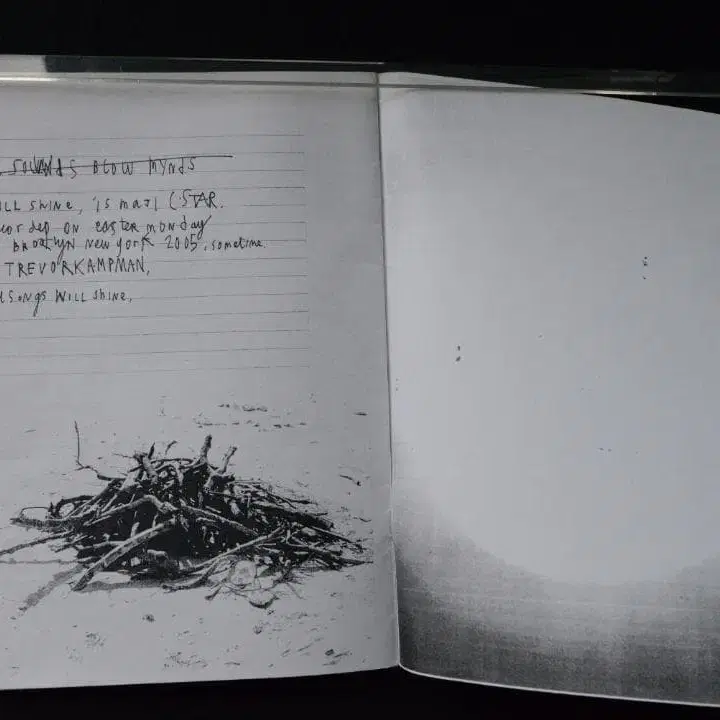 SOUNDS BLOW MYNDS
ILL SHINE, IS MAJI (STAR.
corded ON easter monday
BROOKLYN NEW YORK 2005, sometime
TREVORKAMPMAN,
SONGS WILL SHINE,